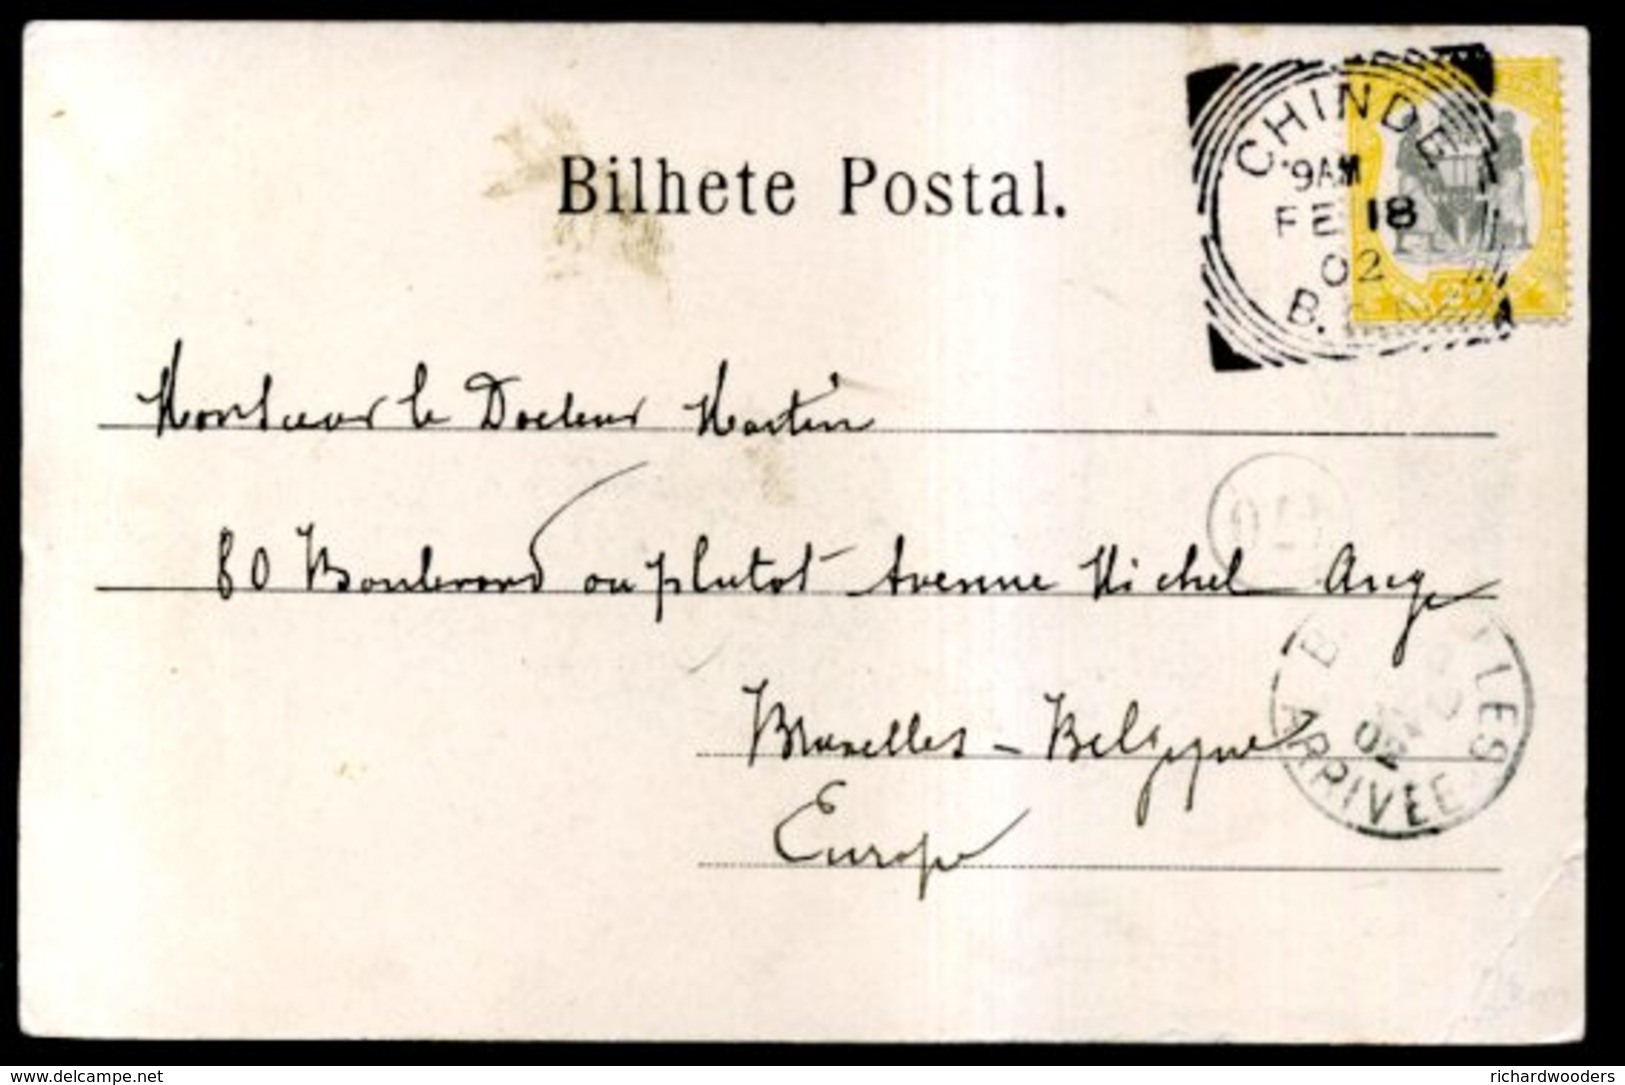 Bilhete Postal.
CHINDE
9AM
FE 18
02
B.
Monsieur le Docteur Martin
80 Boulevard ou plutot Avenue Michel Ange
Bruxelles - Belgique
Europe
ARRIVEE
02
delcampe.net
richardwooders